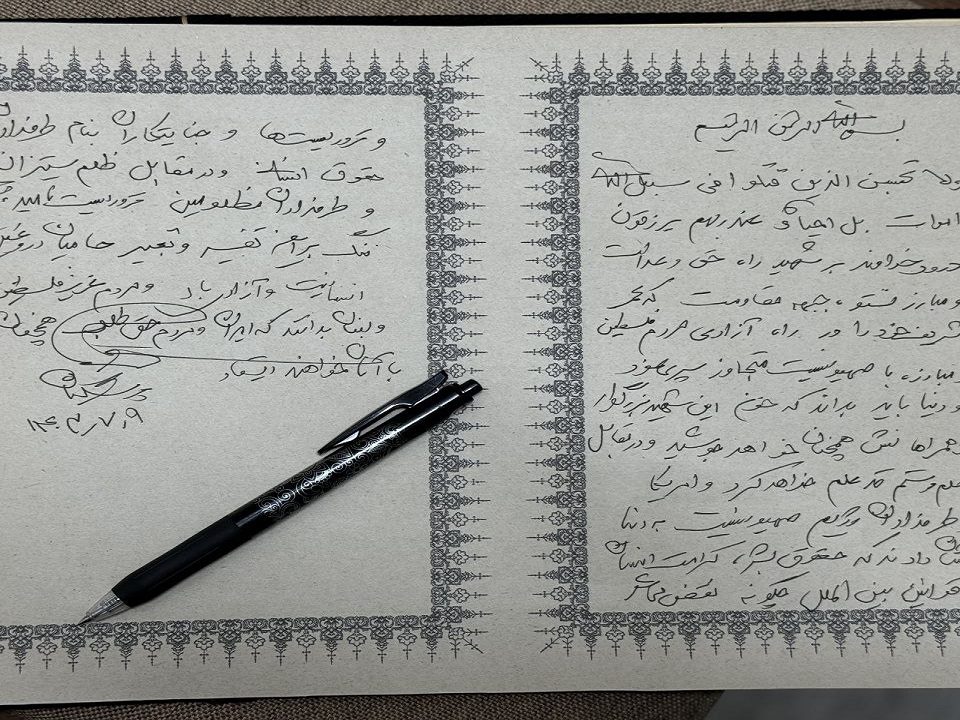 بسم الله الرحمن الرحیم
ولا تحسبن الذین قتلوا فی سبیل الله
اموات بل احیاء عند ربهم یرزقون
درود خداوند بر شهید راه حق و عدالت
و مبارز نستوه جبهه مقاومت که عمر
شریف خود را در راه آزادی مردم فلسطین
و مبارزه با صهیونیست متجاوز سپری نمود
و دنیا باید بداند که خون این شهید بزرگوار
و همراهانش همچنان خواهد جوشید و در مقابل
ظلم و ستم قد علم خواهد کرد و امریکا
طرفداران رژیم صهیونیست به دنیا
نشان دادند که حقوق بشر، کرامت انسان
قوانین بین الملل چگونه نقض
و تروریست‌ها و جنایتکاران بنام طرفداران
حقوق انسان و در مقابل ظلم ستیزان
و طرفداران مظلومین تروریست نامیده
ننگ بر این تفسیر و تعبیر حامیان دروغین
انسانیت و آزادی باد و مردم عزیز فلسطین
و لبنان بدانند که ایران و مردم حق طلب همچنان
با آنان خواهند ایستاد
پزشکیان
۱۴۰۳/۷/۹